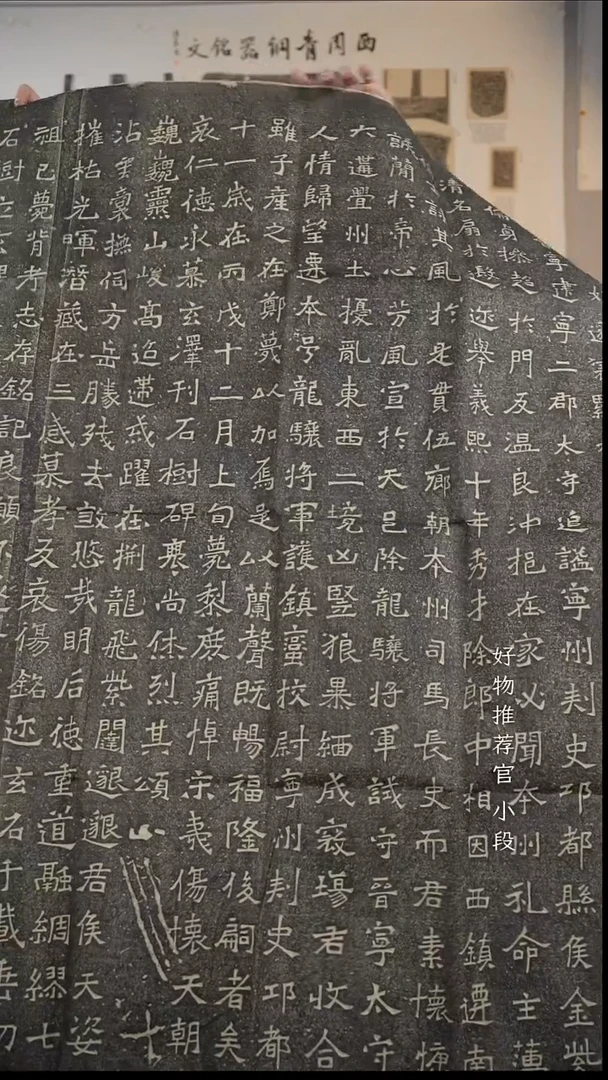 西周青铜器铭文
寧建寧二郡太守追謚寧州刾史邛都縣侯金紫
貞操超於門友温良沖挹在家必聞本州礼命主薄
清名扇於遐迩舉義熙十年秀才除郎中相西鎮遷南
詠其風於是貫伍鄉朝本州司馬長史而君素懷慷
誠簡於帝心芳風宣於天邑除龍驤將軍試守晉寧太守
六遘舋州土擾亂東西二境凶竪狼暴緬成寇場君收合
人情歸望遷本号龍驤將軍護鎮蠻校尉寧州刾史邛都
雖子產之在鄭蔑以加焉是以蘭聲既暢福隆後嗣者矣
十一歲在丙戌十二月上旬薨黎庶痛悼宋夷傷懷天朝
哀仁德永慕玄澤刊石樹碑褒尚烋烈其頌曰
巍巍靈山峻高迢遰或躍在淵龍飛紫闥邈邈君侯天姿
沾雲裳撫伺方岳勝殘去煞悠哉明后德重道融綢繆七
摧枯光暉潛藏在三感慕孝友哀傷銘迩玄石千載垂功
祖已薨背考志存銘記良願不
石樹立玄
好物推荐官小段